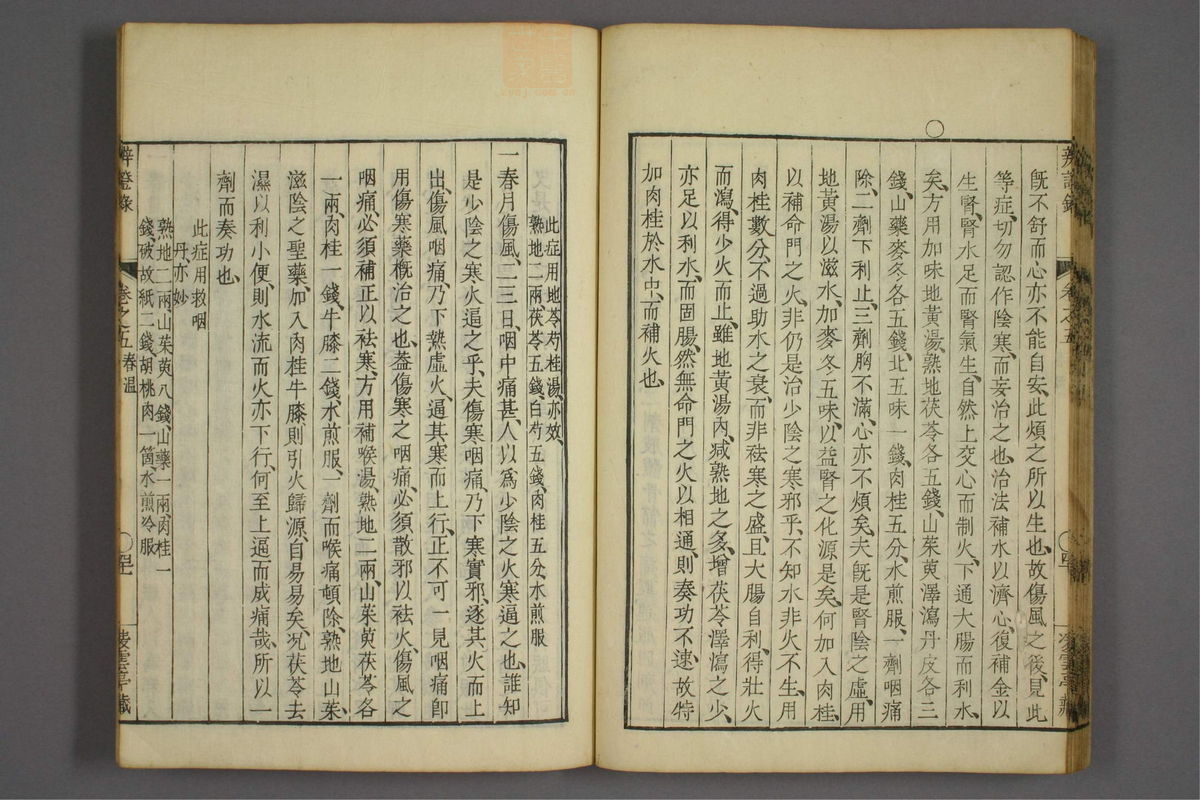 既不舒而心亦不能自安、此煩之所以生也、故傷風之後、見此
等症、切勿認作陰寒、而妄治之也、治法補水以濟心、復補金以
生腎、腎水足而腎氣生、自然上交心而制火、下通大腸而利水、
矣、方用加味地黃湯、熟地茯苓各五錢、山茱萸澤瀉丹皮各三
錢、山藥麥冬各五錢、北五味一錢、肉桂五分、水煎服、一劑咽痛
除、二劑下利止、三劑胸不滿、心亦不煩矣、夫既是腎陰之虛、用
地黃湯以滋水、加麥冬五味、以益腎之化源是矣、何加入肉桂、
以補命門之火、非仍是治少陰之寒邪乎、不知水非火不生、用
肉桂數分、不過助水之衰、而非袪寒之盛、且大腸自利、得壯火
而瀉、得少火而止、雖地黃湯內、減熟地之多、增茯苓澤瀉之少、
亦足以利水、而固腸、然無命門之火以相通、則奏功不速、故特
加肉桂於水中、而補火也、
辨證錄
卷之五
凌雲亭
此症用地苓芍桂湯、亦效、
熟地二兩茯苓五錢、白芍五錢、肉桂五分、水煎服
一春月傷風、二三日、咽中痛甚、人以爲少陰之火寒逼之也、誰知
是少陰之寒火逼之乎、夫傷寒咽痛、乃下寒實邪、逐其火而上
出、傷風咽痛、乃下熱虛火、逼其寒而上行、正不可一見咽痛卽
用傷寒藥槪治之也、蓋傷寒之咽痛、必須散邪以袪火、傷風之
咽痛、必須補正以袪寒、方用補喉湯、熟地二兩、山茱萸茯苓各
一兩、肉桂一錢、牛膝二錢、水煎服、一劑而喉痛頓除、熟地山茱、
滋陰之聖藥、加入肉桂牛膝、則引火歸源、自易易矣、况茯苓去
濕以利小便、則水流而火亦下行、何至上逼而成痛哉、所以一
劑而奏功也、
此症用救咽
丹、亦妙
熟地二兩、山茱萸八錢、山藥一兩、肉桂一
錢、破故紙二錢、胡桃肉一箇、水煎冷服
辨證錄
卷之五
春溫
凌雲亭藏